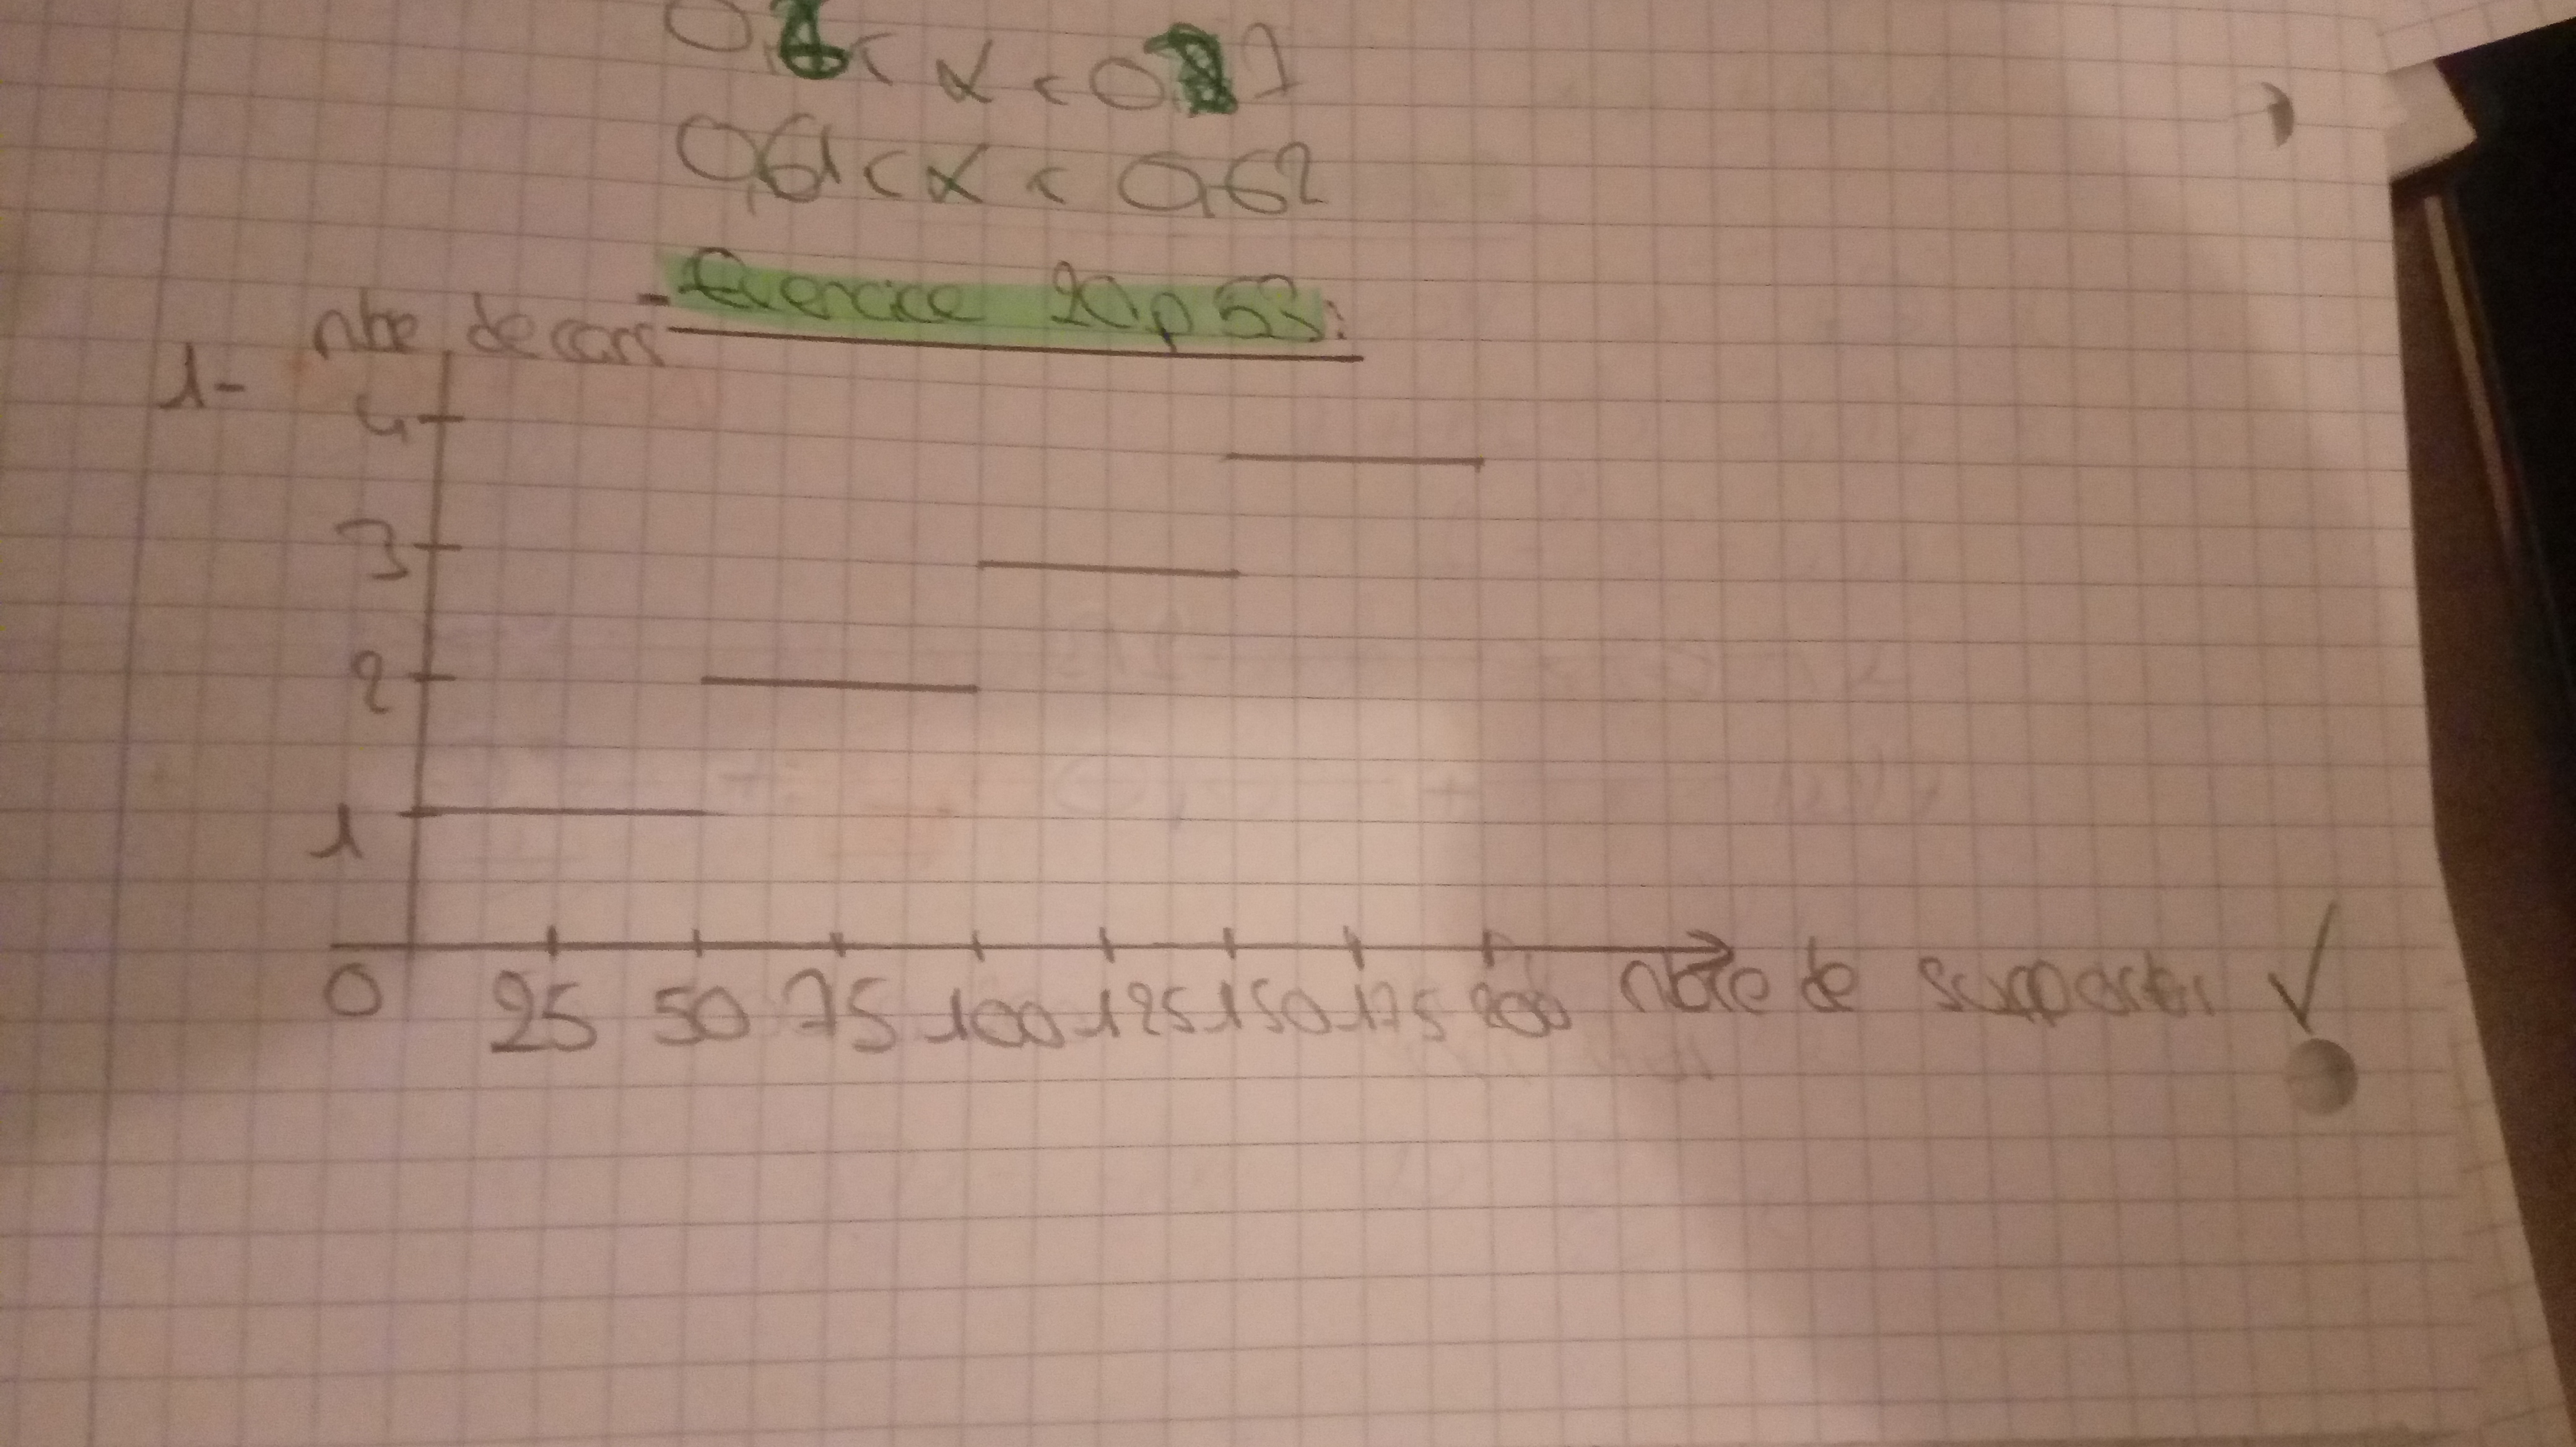 < α <
0,61 < α < 0,62
Exercice 20 p 53:
nbre de cars
1-
4
3
2
1
0 25 50 75 100 125 150 175 200 nbre de supporters